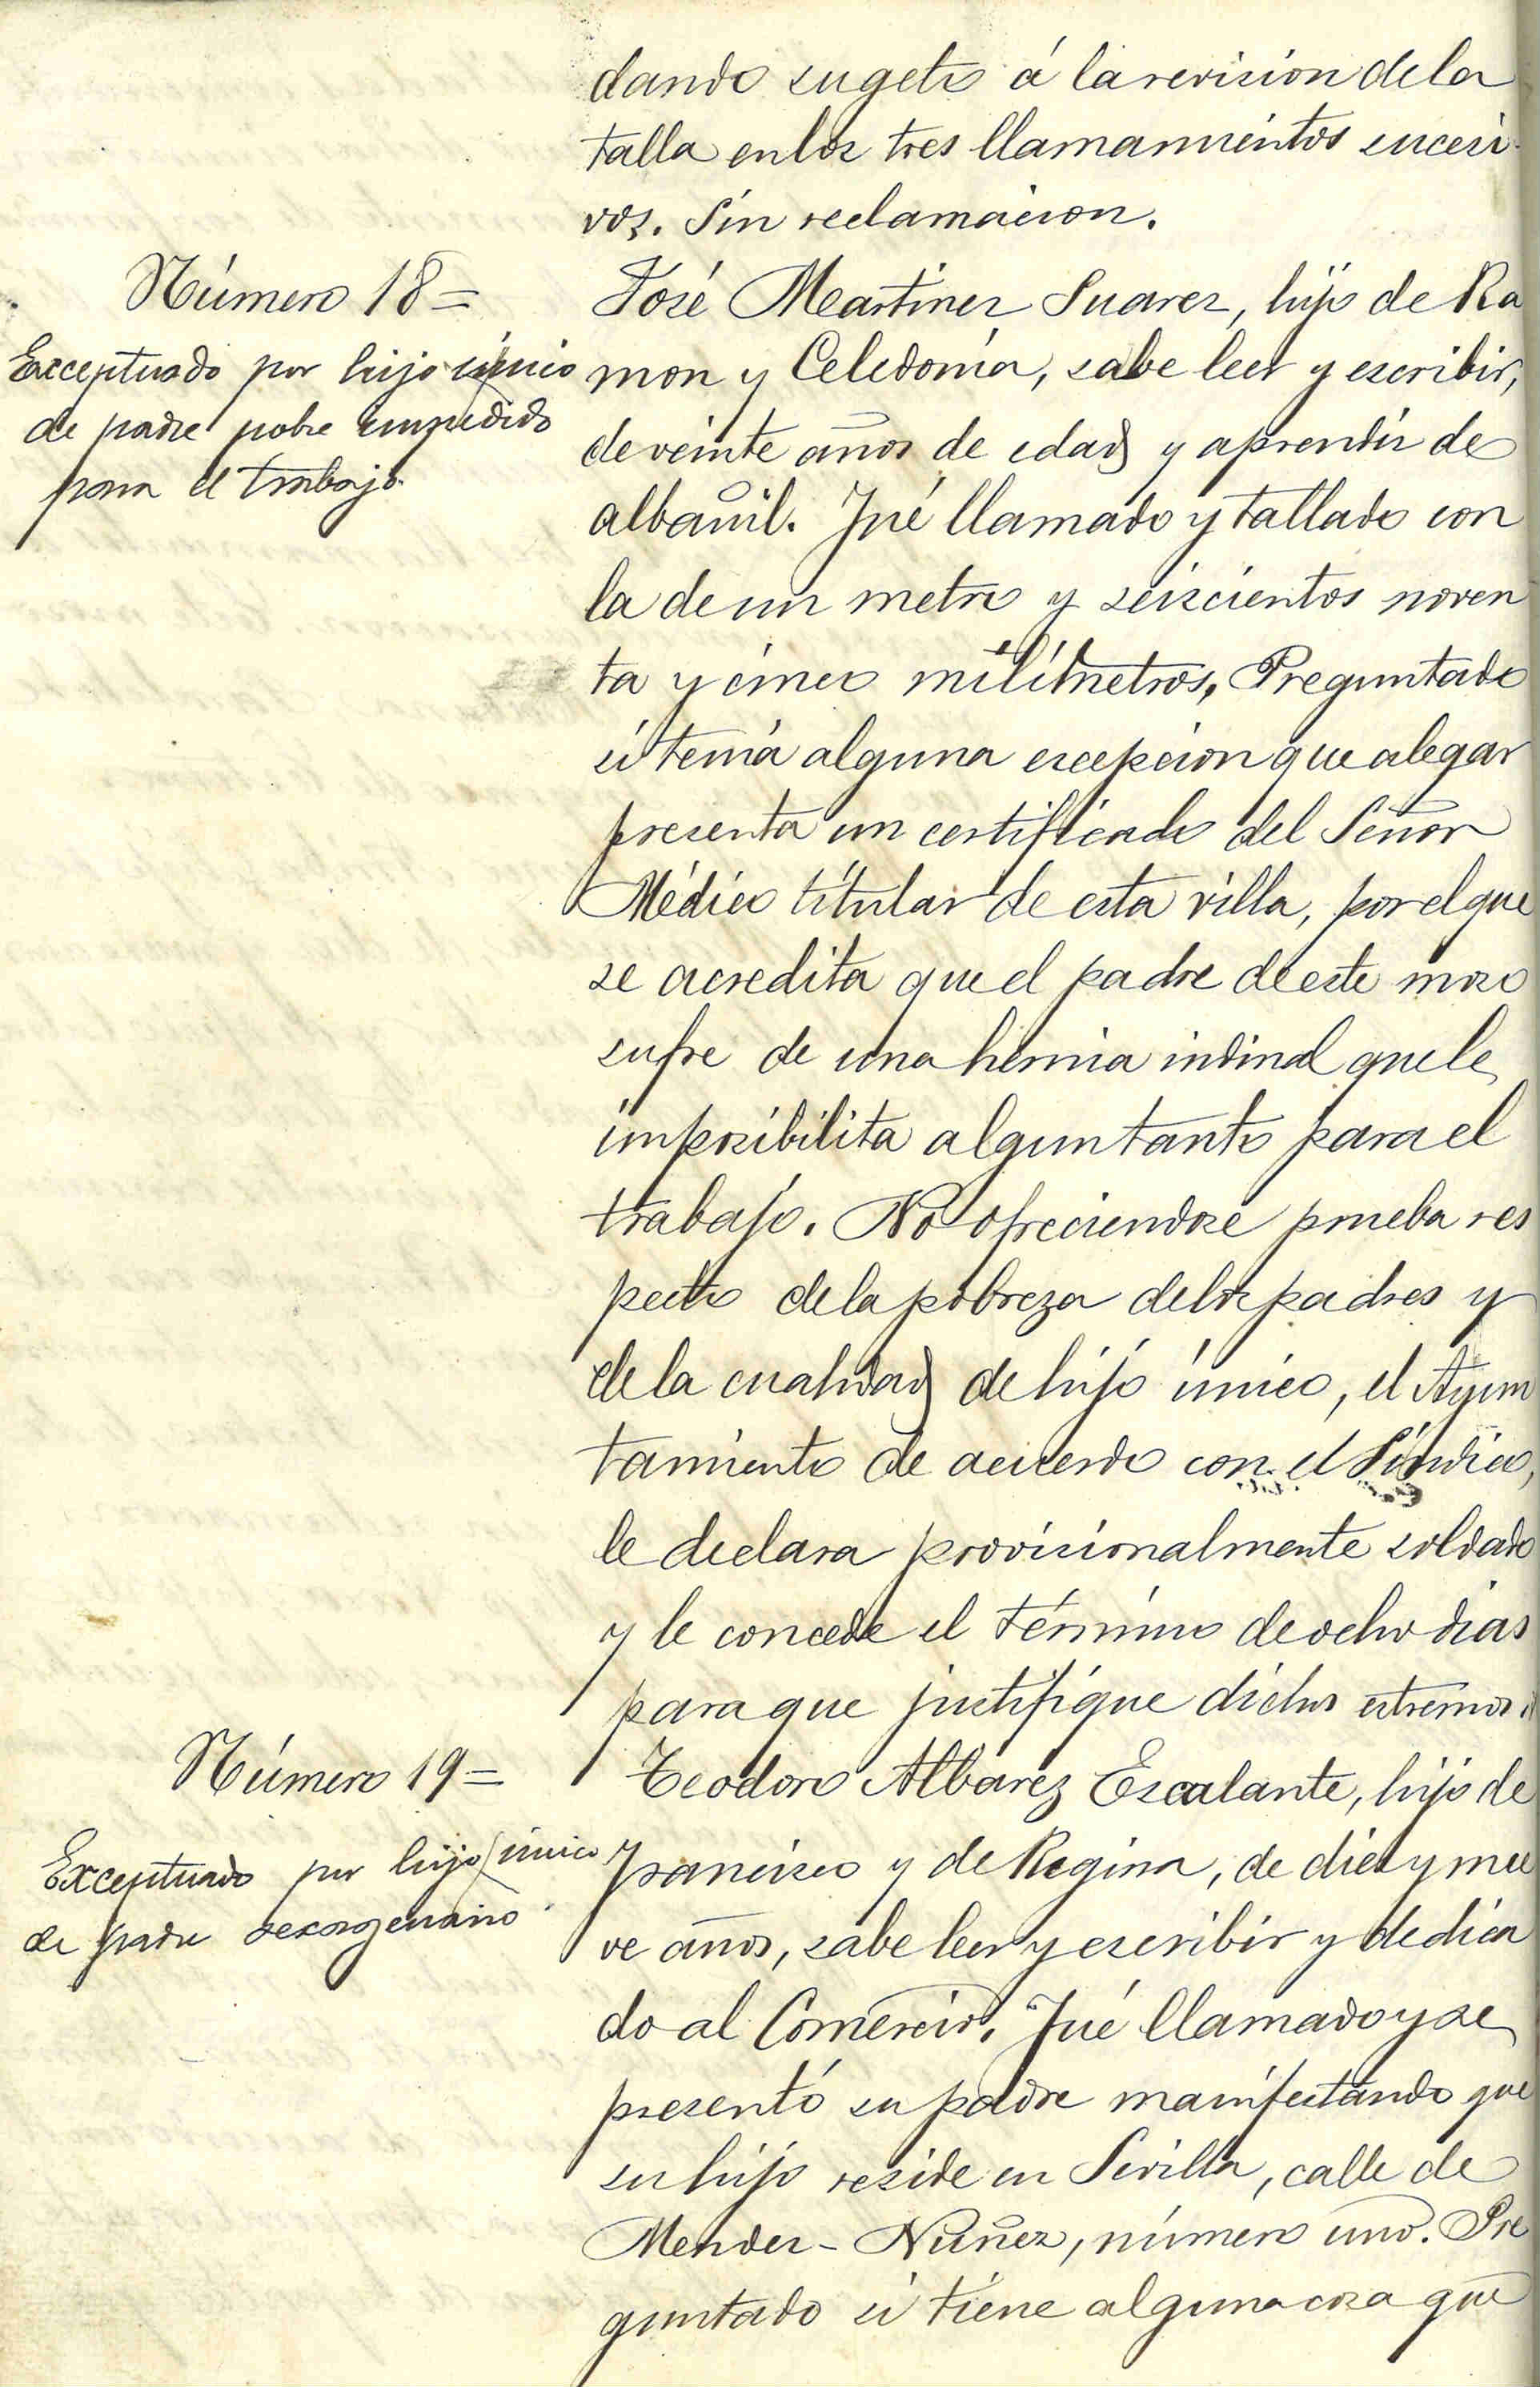 dando sugeto á la revision de la
talla en los tres llamamientos sucesi-
vos. Sin reclamacion.
Número 18=
Exceptuado por hijo único
de padre pobre impedido
para el trabajo.
José Martinez Suarez, hijo de Ra
mon y Celedonia, sabe leer y escribir,
de veinte años de edad y aprendiz de
albañil. Fué llamado y tallado con
la de un metro y seiscientos noven
ta y cinco milímetros, Preguntado
si tenía alguna escepcion que alegar
presenta un certificado del Señor
Médico titular de esta villa, por el que
se acredita que el padre de este mozo
sufre de una hernia indinal que le
imposibilita algun tanto para el
trabajo. No ofreciendose prueba res
pecto de la pobreza de los padres y
de la cualidad de hijo único, el Ayun
tamiento de acuerdo con el Síndico,
le declara provisionalmente soldado
y le concede el término de ocho dias
para que justifique dichos estremos.
Número 19=
Exceptuado por hijo único
de padre sexagenario
Teodoro Albarez Escalante, hijo de
Francisco y de Regina, de diez y nue
ve años, sabe leer y escribir y dedica
do al Comercio. Fué llamado y se
presentó su padre manifestando que
su hijo reside en Sevilla, calle de
Mendez-Nuñez, número uno. Pre
guntado si tiene alguna cosa que